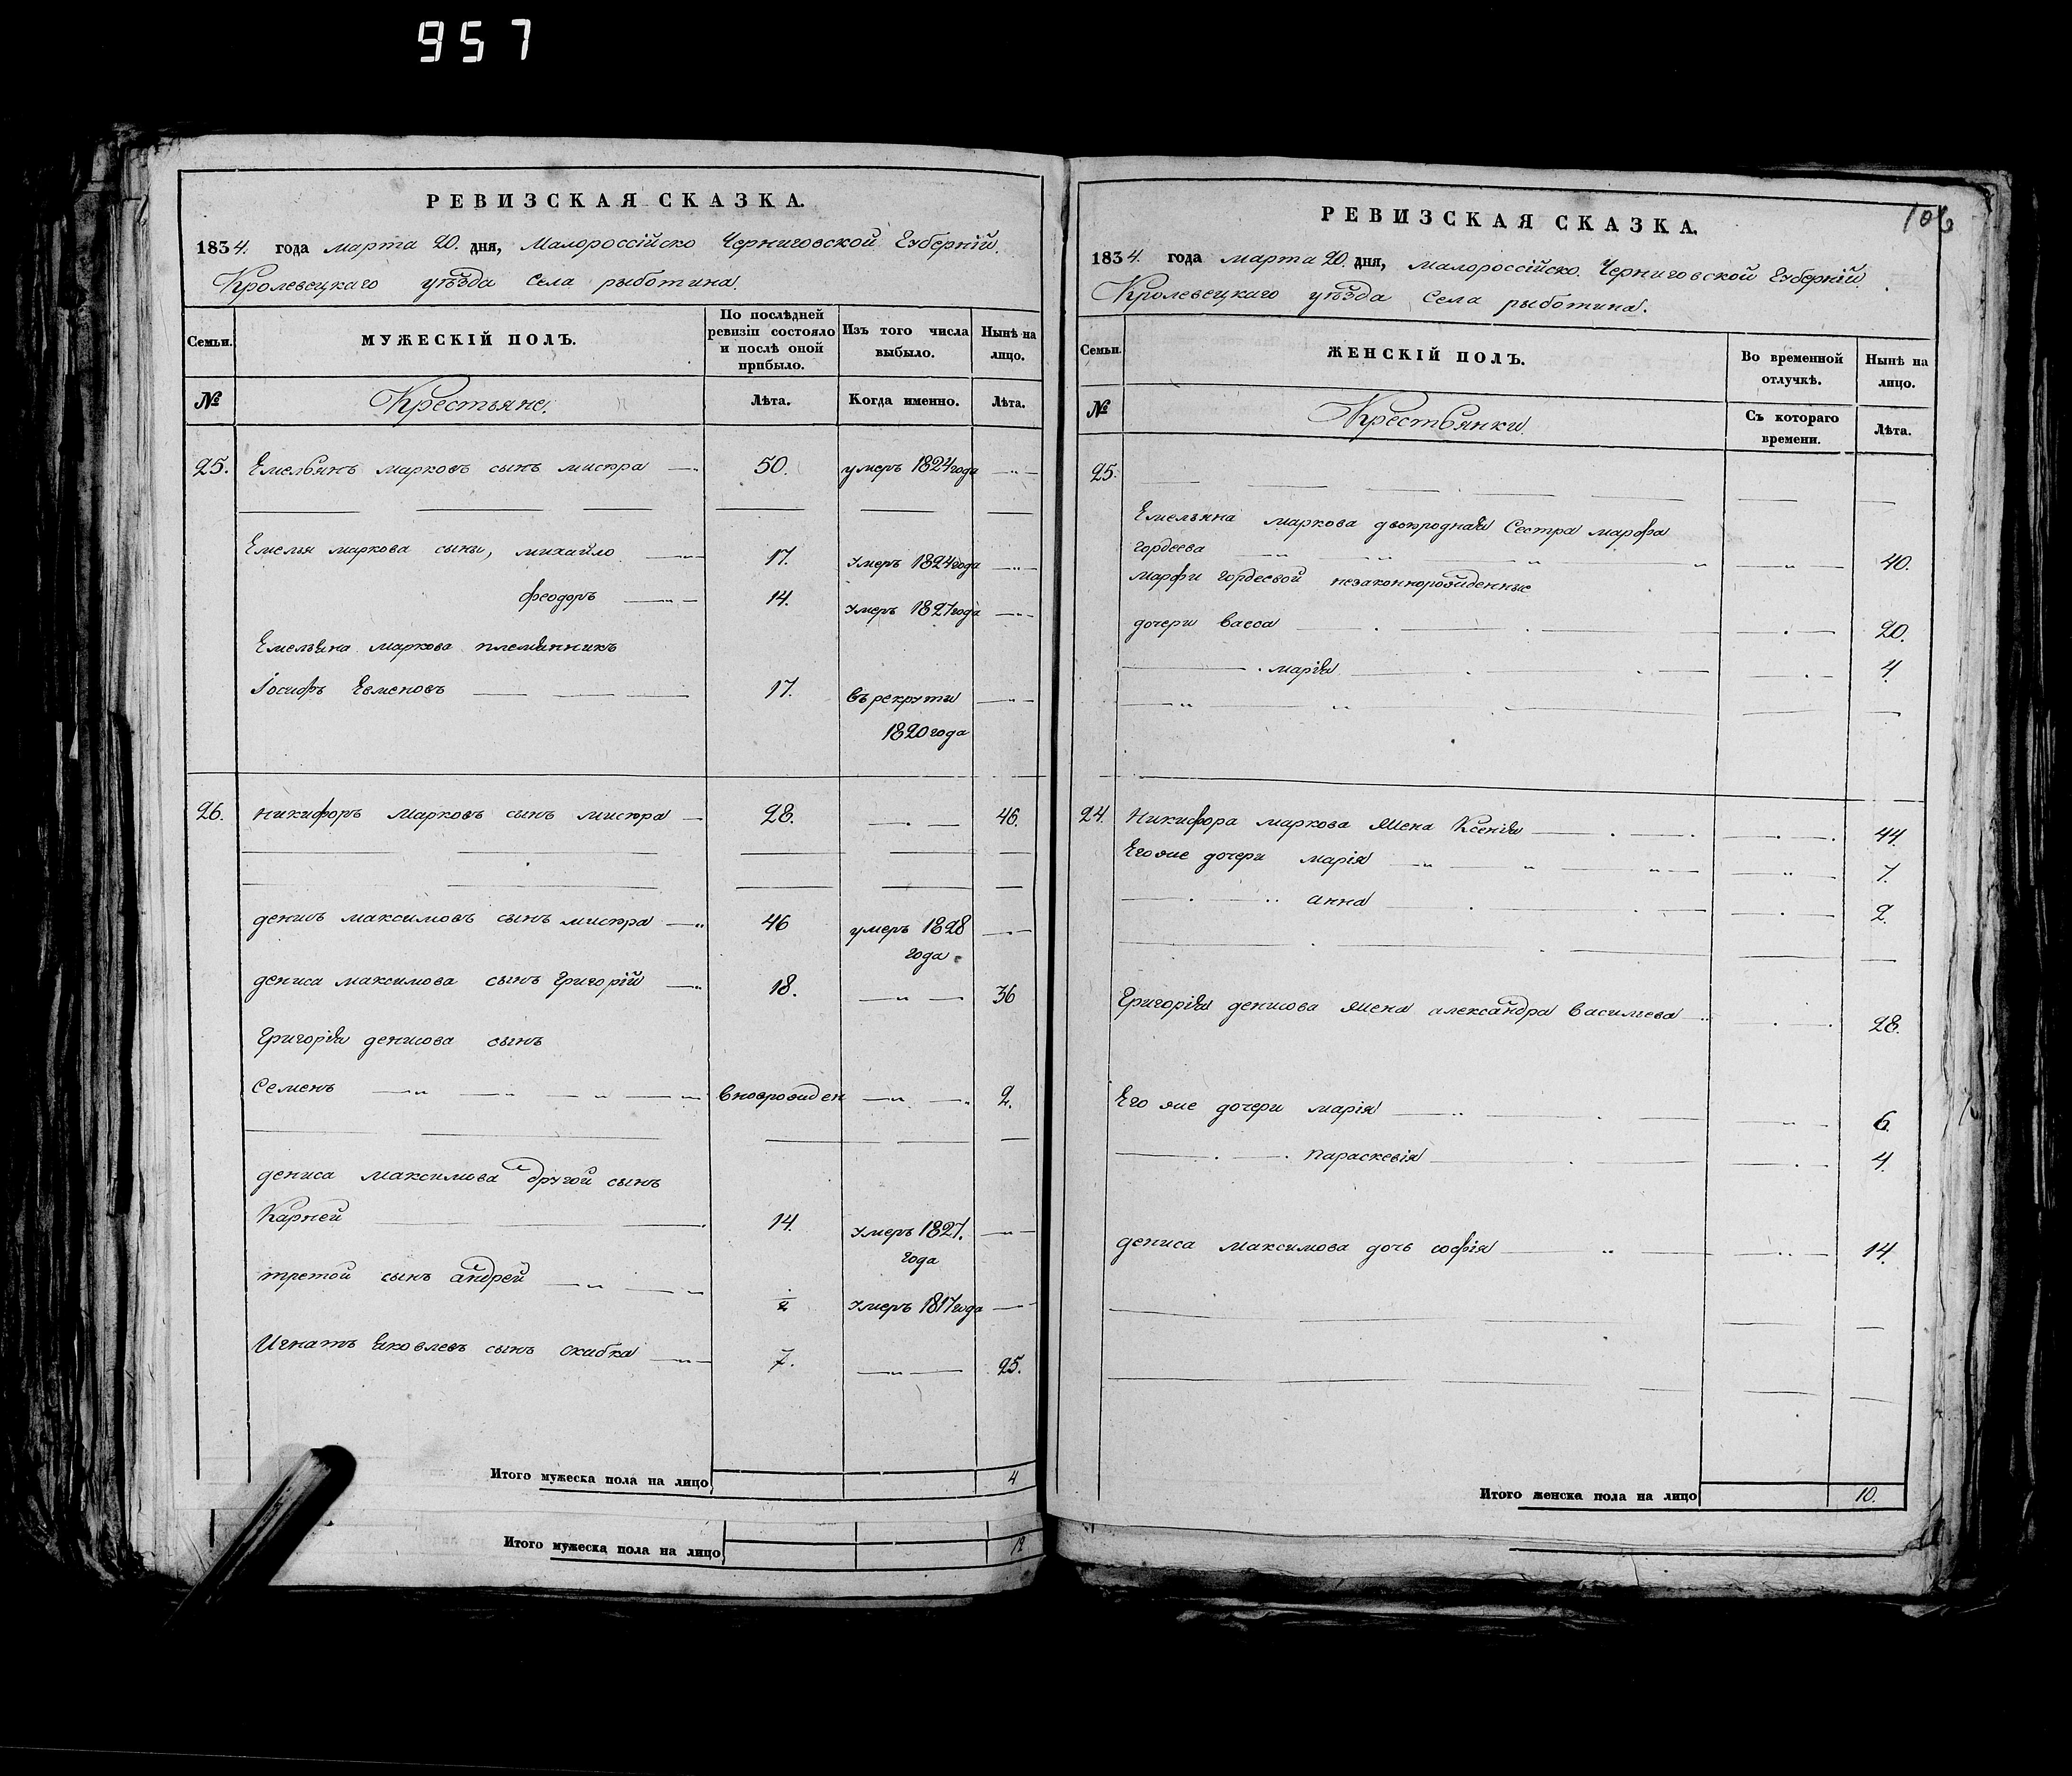 957
РЕВИЗСКАЯ СКАЗКА.
1834. года марта 20. дня, Малороссійско Черниговской Губерніи.
Кролевецкаго уѣзда Села рыботина.
Семьи.
МУЖЕСКІЙ ПОЛЪ.
По послѣдней ревизіи состояло и послѣ оной прибыло.
Изъ того числа выбыло.
Нынѣ на лицо.
№
Крестьяне.
Лѣта.
Когда именно.
Лѣта.
25. Емельянъ марковъ сынъ мисюра 50. умеръ 1824 года
Емелья маркова сыны, михайло 17. умеръ 1824 года
феодоръ 14. умеръ 1827 года
Емельяна маркова племянникъ
Іосифъ Евменовъ 17. въ рекруты
1820 года
26. никифоръ марковъ сынъ мисюра 28. 46.
денисъ максимовъ сынъ мисюра 46 умеръ 1828
года.
дениса максимова сынъ григорій 18. 36
григорія денисова сынъ
Семенъ вновврожден 2.
дениса максимова другой сынъ
Карней 14. умеръ 1827.
года
третой сынъ андрей 1/2 умеръ 1817 года
Игнатъ яковлевъ сынъ скибка 7. 25.
Итого мужеска пола на лицо 4
Итого мужеска пола на лицо 12
106
РЕВИЗСКАЯ СКАЗКА.
1834. года марта 20. дня, малороссійско. Черниговской Губерніи
Кролевецкаго уѣзда Села рыботина.
Семьи.
ЖЕНСКІЙ ПОЛЪ.
Во временной отлучкѣ.
Нынѣ на лицо.
№
Крестьянки.
Съ котораго времени.
Лѣта.
25.
Емельяна маркова двоюродная Сестра марфа
гордеева 40.
марфи гордеевой незаконнорожденные
дочери васса 20.
марія 4.
24. Никифора маркова жена Ксенія 44.
Его же дочери марія 7.
анна 2.
григорія денисова жена александра васильева 28.
Его же дочери марія 6.
параскевія 4.
дениса максимова дочь софія 14.
Итого женска пола на лицо 10.